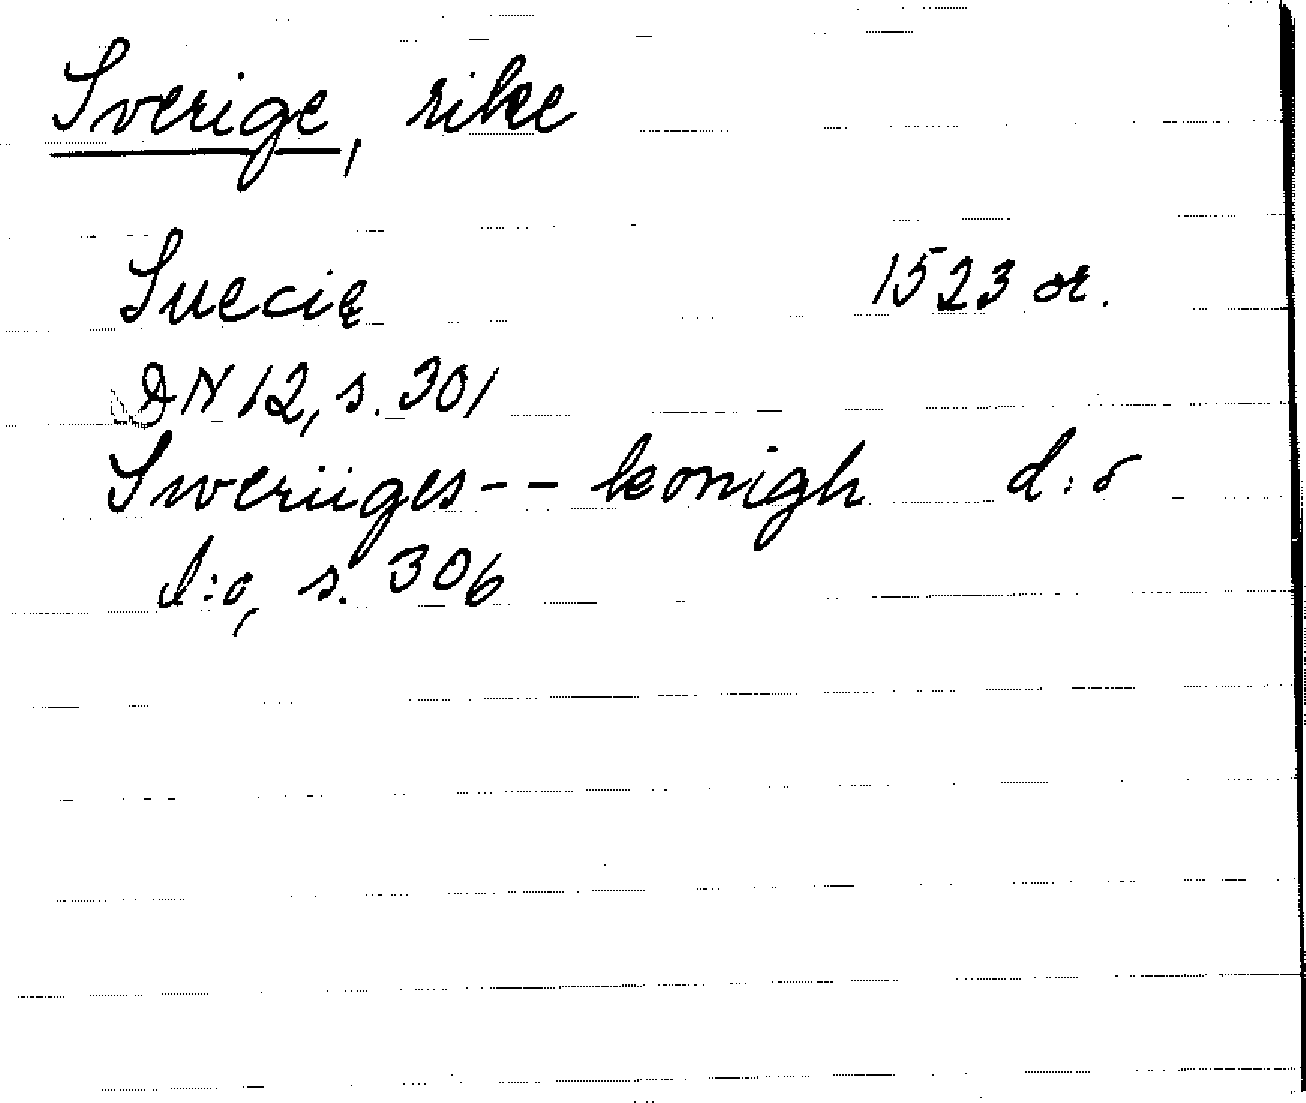 Sverige, rike
Suecię 1523 or.
DN 12, s. 301
Sweriiges -- konigh d:o
d:o, s. 306